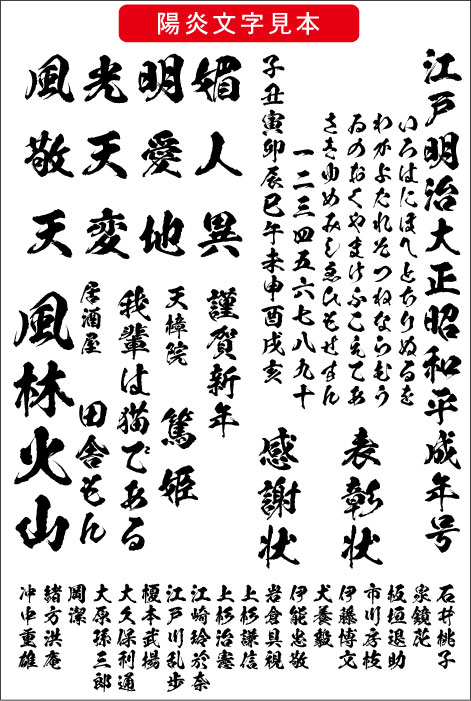 陽炎文字見本
江戸明治大正昭和平成年号
いろはにほへとちりぬるを
わかよたれそつねならむう
ゐのおくやまけふこえてあ
さきゆめみしゑひもせすん
一二三四五六七八九十
子丑寅卯辰巳午未申酉戌亥
表彰状
感謝状
媚人異
明愛地
光天変
風敬天
謹賀新年
天樟院 篤姫
我輩は猫である
居酒屋 田舎もん
風林火山
石井桃子
泉鏡花
板垣退助
市川房枝
伊藤博文
犬養毅
伊能忠敬
岩倉具視
上杉謙信
上杉治憲
江崎玲於奈
江戸川乱歩
榎本武揚
大久保利通
大原孫三郎
岡潔
緒方洪庵
沖中重雄